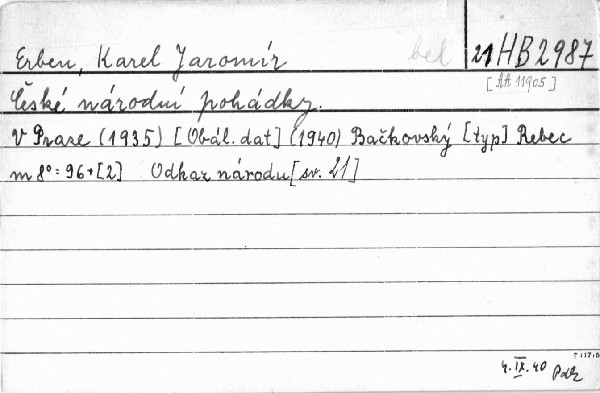 Erben, Karel Jaromír bel 21 HB 2987
[AA 11905]
České národní pohádky.
V Praze (1935) [Obál. dat] (1940) Bačkovský [typ] Rebec
m 8° = 96+[2] Odkaz národu [sv. 21]
4. IX. 40